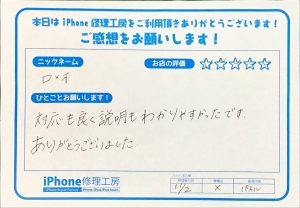 本日は iPhone 修理工房をご利用頂きありがとうございます!
ご感想をお願いします!
ニックネーム
お店の評価 ☆☆☆☆☆
ひとことお願いします!
対応も良く説明もわかりやすかったです。
ありがとうございました
iPhone修理工房
11/2